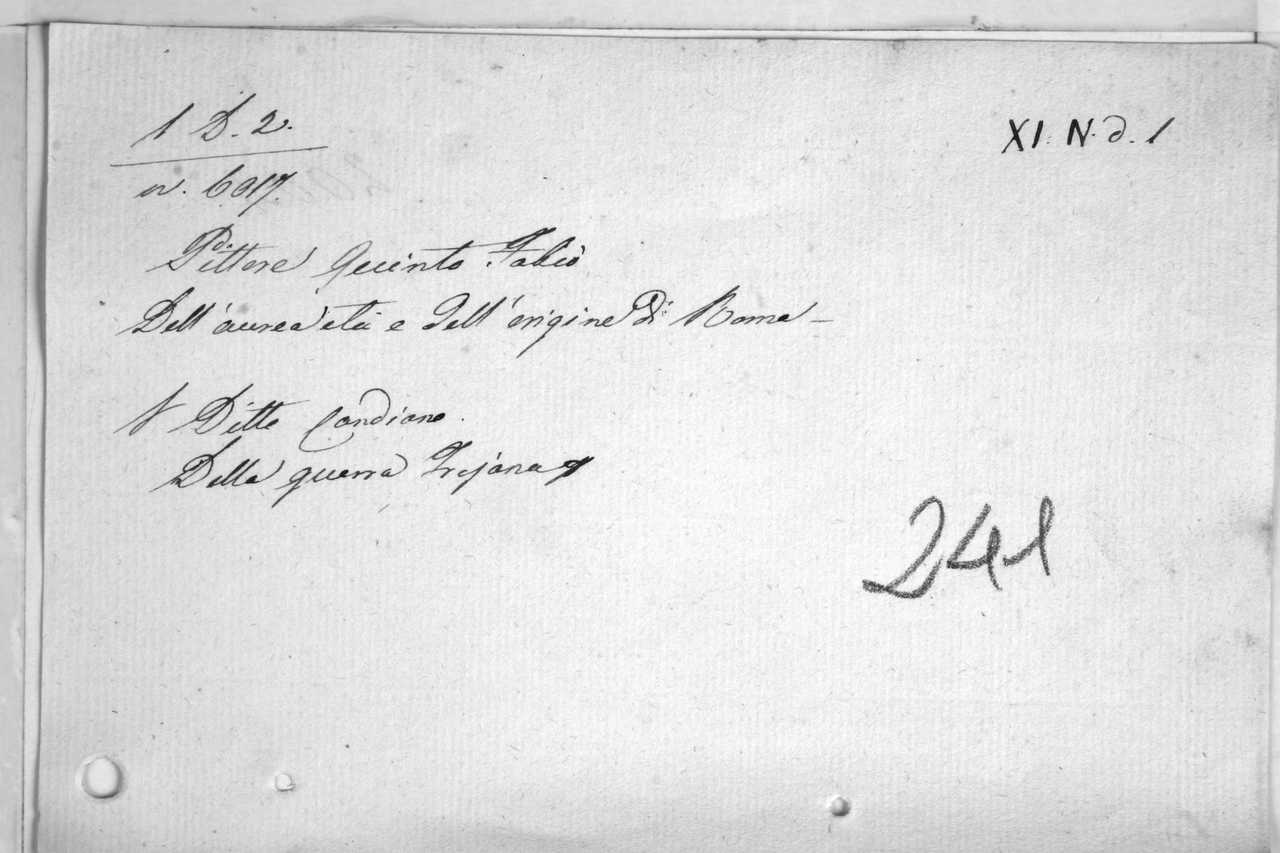 1 D. 2.
XI. N. d. 1
n. 6917.
Pittore Quinto Fabio
Dell' aurea età e dell' origine di Roma —
Ditte Candiano.
Della guerra Trojana
241